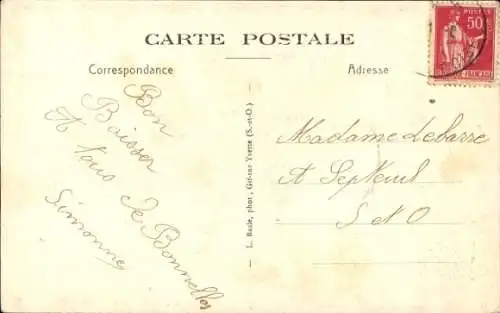 CARTE POSTALE
Correspondance
Adresse
POSTES
50
Bon
Baiser
A tous de Bonnelles
Simonne
L. Basle, phot., Gif-sur-Yvette (S.-et-O.)
Madame Lebarre
A Septeuil
S et O